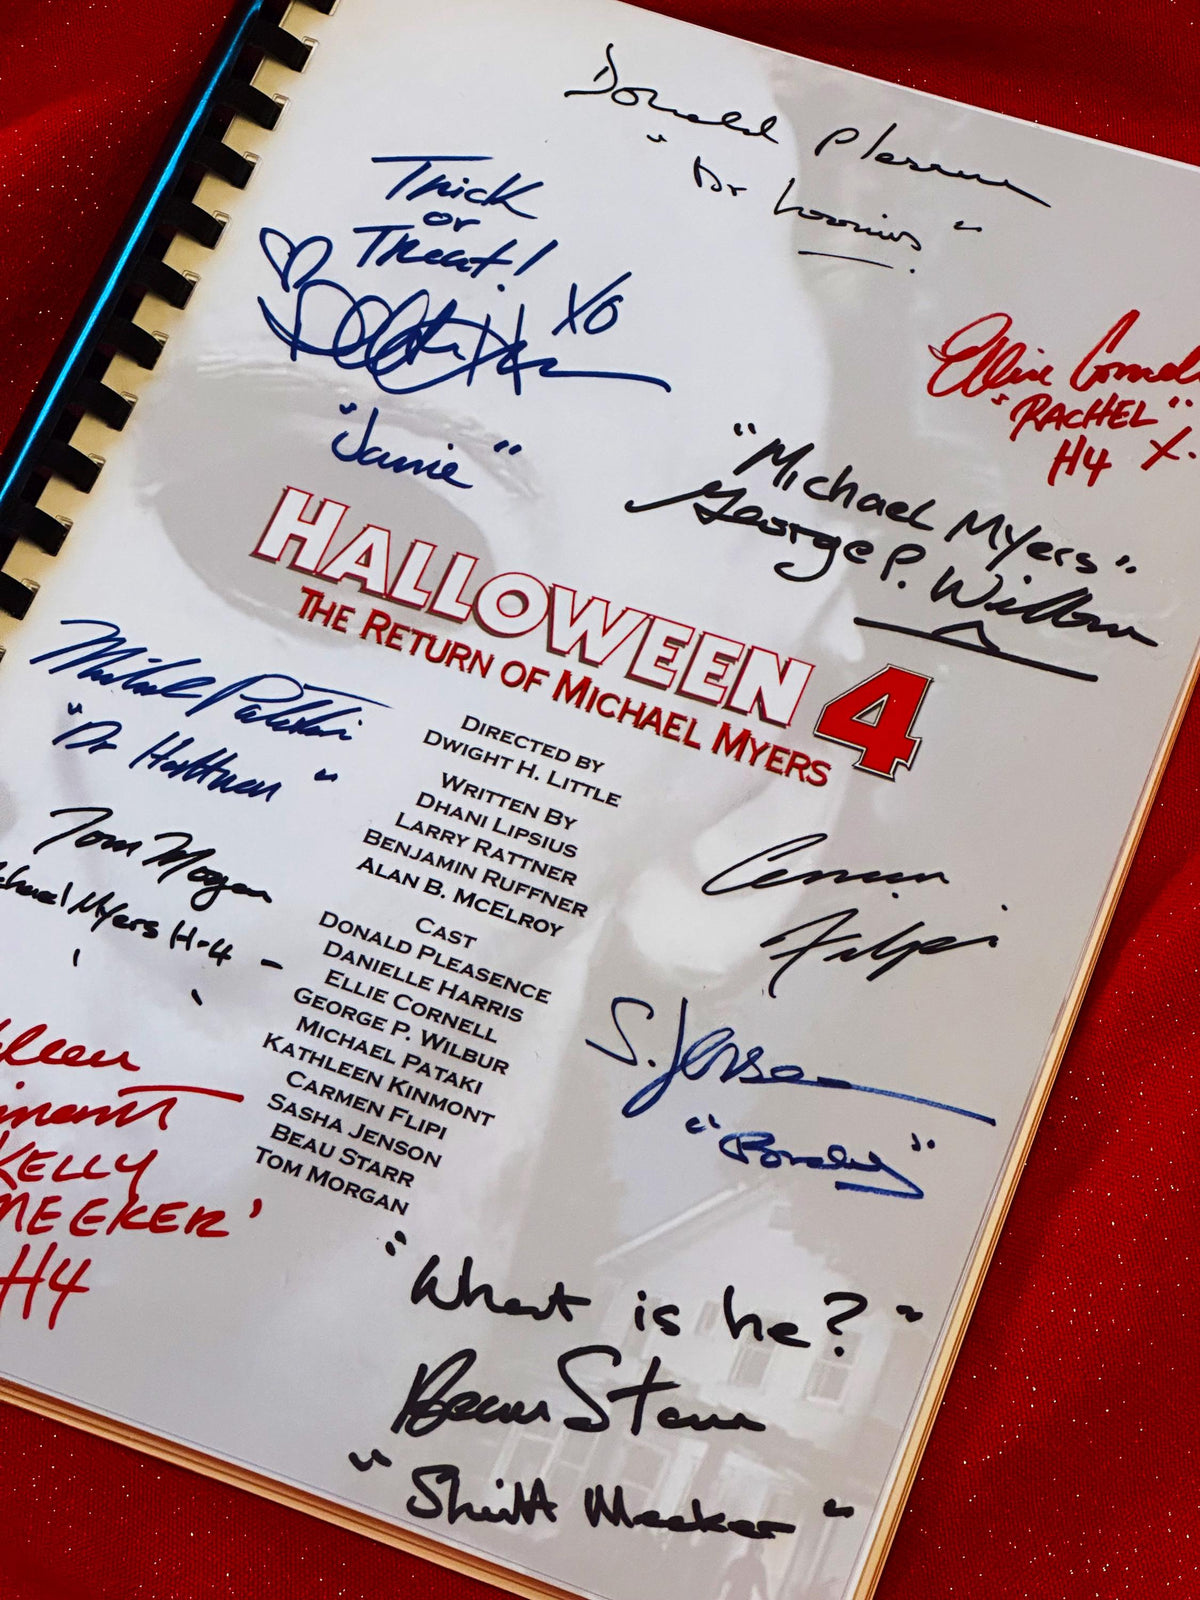 Donald Pleasence
"Dr Loomis"
Trick
or
Treat!
XO
"Jamie"
Ellie Cornell
"RACHEL"
H4 X.
"Michael Myers"
George P. Wilbur
HALLOWEEN 4
THE RETURN OF MICHAEL MYERS
Michael Pataki
"Dr Hoffman"
Tom Morgan
Michael Myers H-4
DIRECTED BY
DWIGHT H. LITTLE
WRITTEN BY
DHANI LIPSIUS
LARRY RATTNER
BENJAMIN RUFFNER
ALAN B. MCELROY
CAST
DONALD PLEASENCE
DANIELLE HARRIS
ELLIE CORNELL
GEORGE P. WILBUR
MICHAEL PATAKI
KATHLEEN KINMONT
CARMEN FLIPI
SASHA JENSON
BEAU STARR
TOM MORGAN
Carmen
Filpi
S. Jenson
"Brady"
KELLY
MEEKER'
H4
"What is he?"
Beau Starr
"Sheriff Meeker"